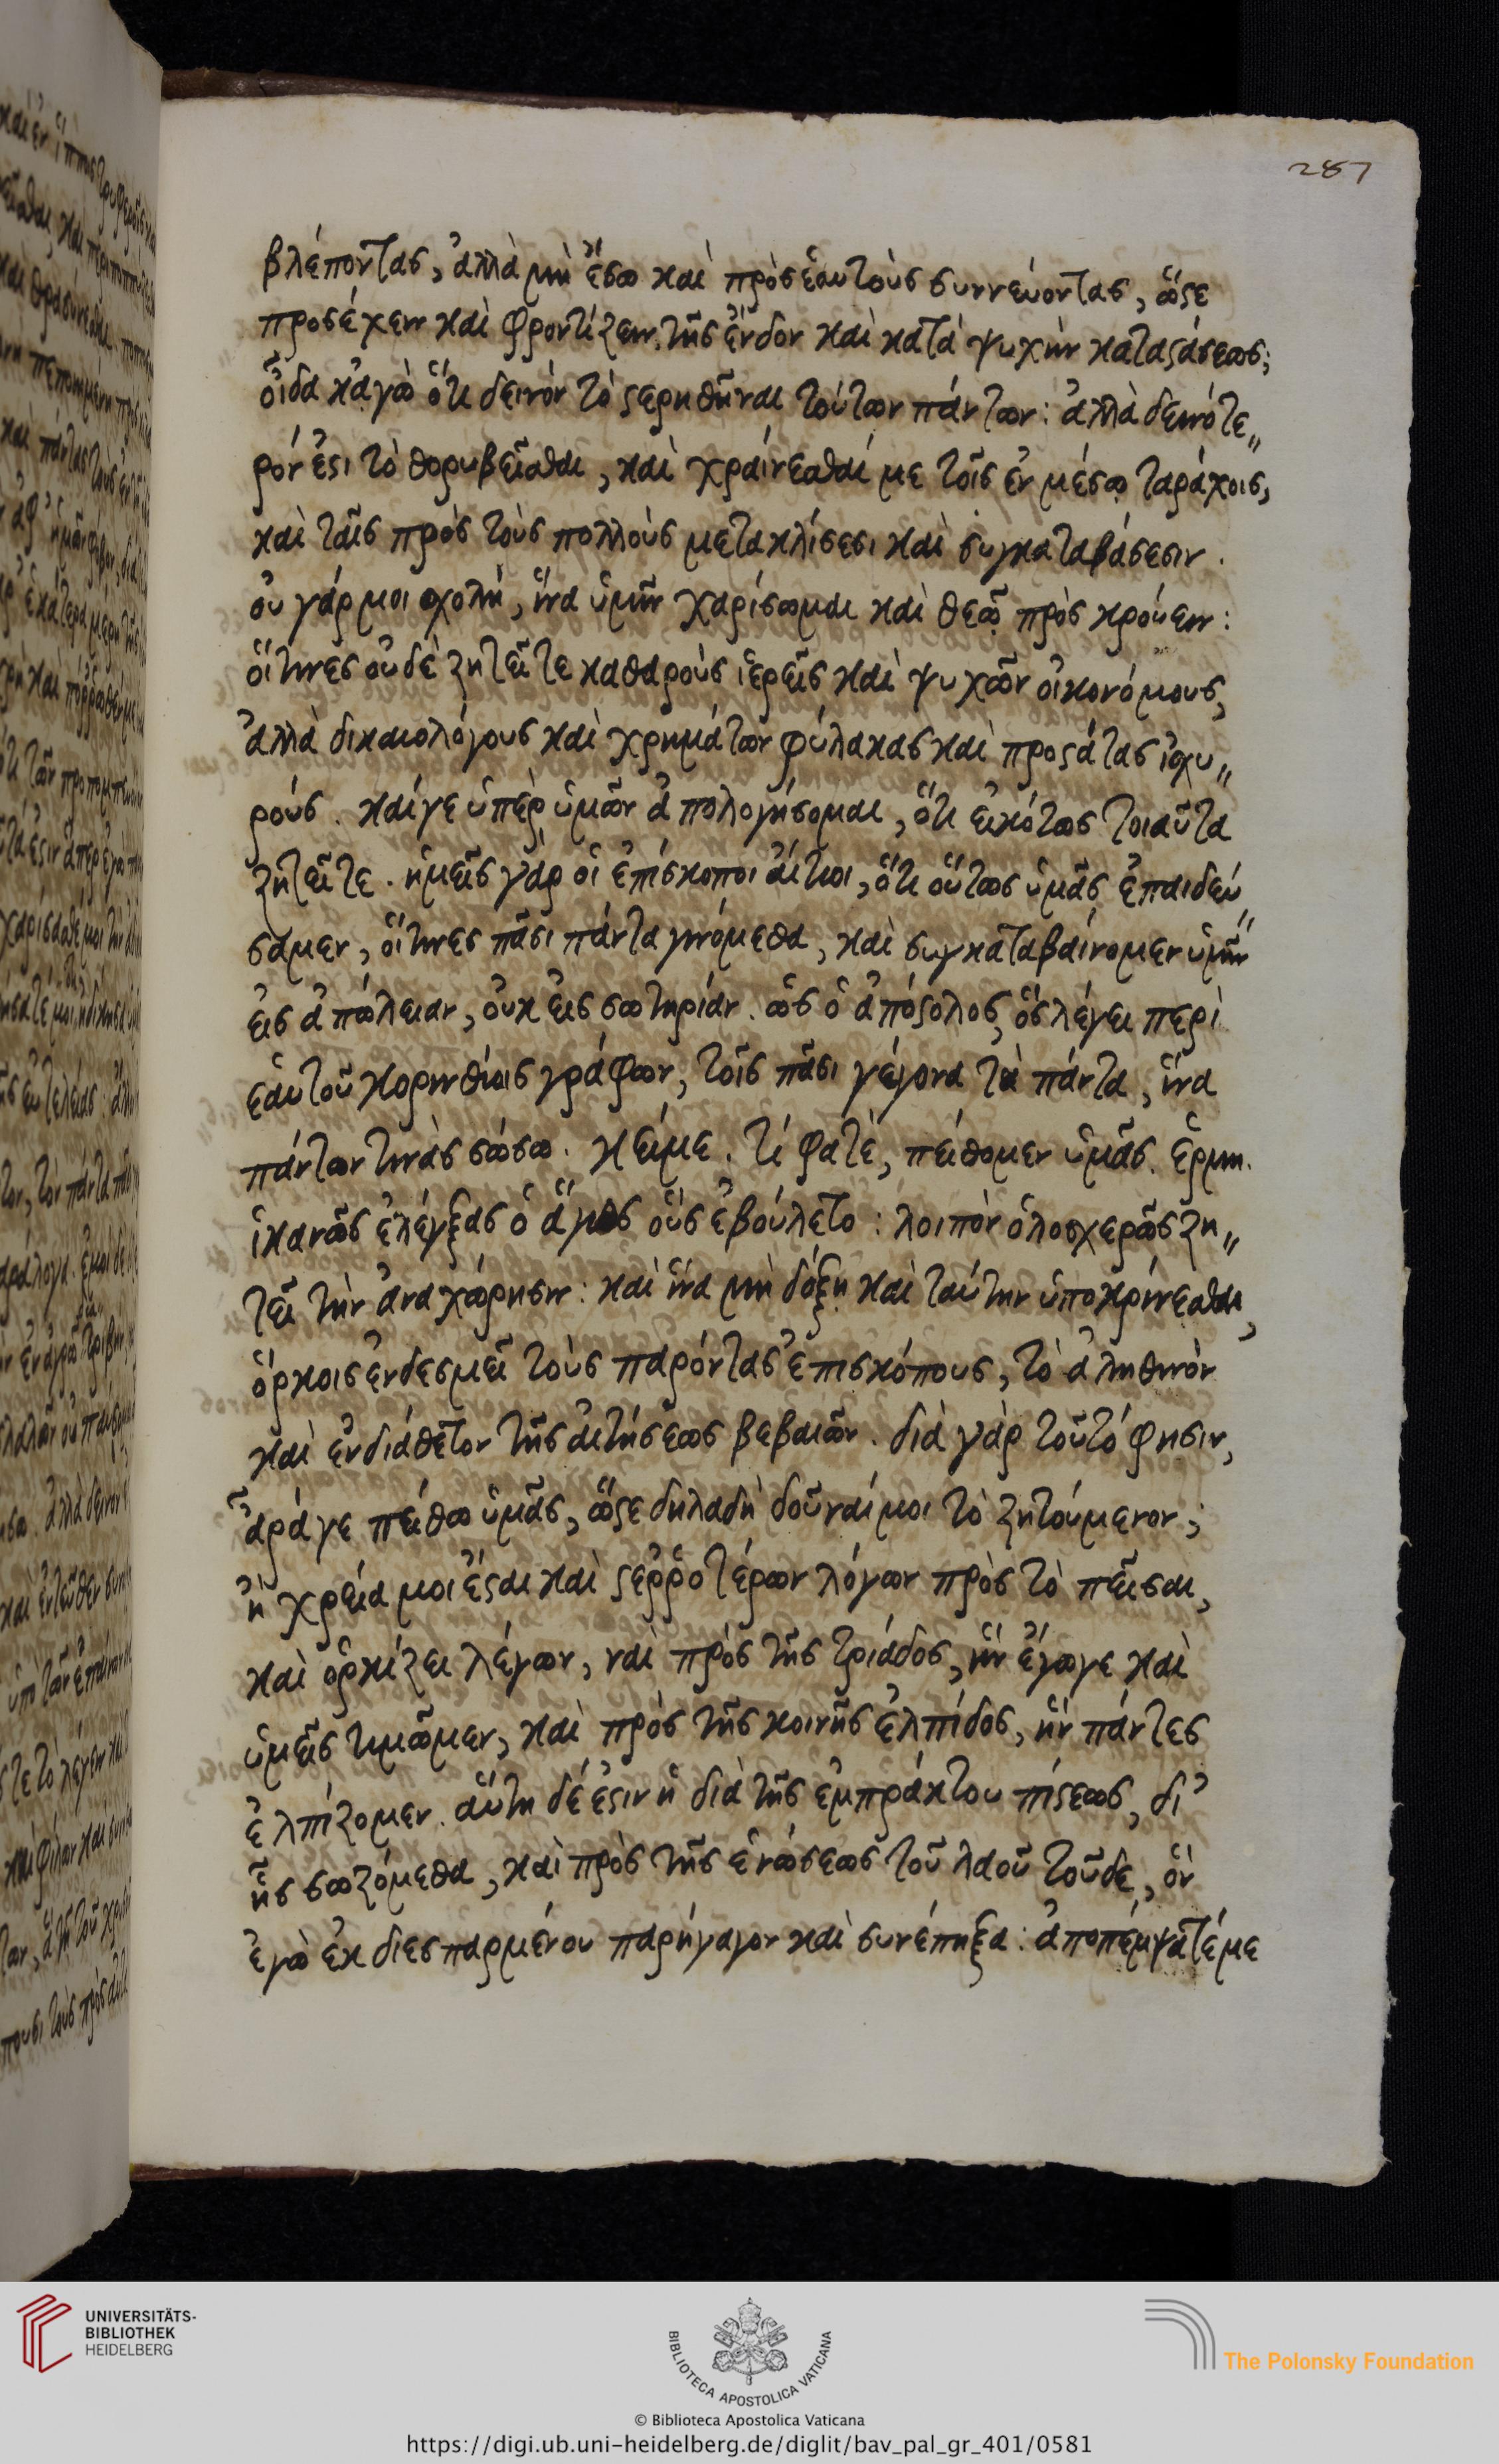 287
βλέποντας, ἀλλὰ μὴ ἔσω καὶ πρὸς ἑαυτοὺς συννεύοντας, ὥστε
προσέχειν καὶ φροντίζειν τῆς ἔνδον καὶ κατὰ ψυχὴν καταστάσεως;
οἶδα κἀγὼ ὅτι δεινόν τὸ στερηθῆναι τούτων πάντων: ἀλλὰ δεινότε„
ρόν ἐστι τὸ θορυβεῖσθαι, καὶ χραίνεσθαί με τοῖς ἐν μέσῳ ταράχοις,
καὶ ταῖς πρὸς τοὺς πολλοὺς μετακλίσεσι καὶ συγκαταβάσεσιν.
οὐ γάρ μοι σχολὴ, ἵνα ὑμῖν χαρίσωμαι καὶ θεῷ πρὸς κρούειν:
οἵτινες οὐδὲ ζητεῖτε καθαροὺς ἱερεῖς καὶ ψυχῶν οἰκονόμους,
ἀλλὰ δικαιολόγους καὶ χρημάτων φύλακας καὶ προστάτας ἰσχυ„
ρούς. καίγε ὑπὲρ ὑμῶν ἀπολογήσομαι, ὅτι εἰκότως τοιαῦτα
ζητεῖτε. ἡμεῖς γὰρ οἱ ἐπίσκοποι αἴτιοι, ὅτι οὕτως ὑμᾶς ἐπαιδεύ„
σαμεν, οἵτινες πᾶσι πάντα γινόμεθα, καὶ συγκαταβαίνομεν ὑμῖν
εἰς ἀπώλειαν, οὐκ εἰς σωτηρίαν. ὡς ὁ ἀπόστολος, ὃς λέγει περὶ
ἑαυτοῦ κορινθίοις γράφων, τοῖς πᾶσι γέγονα τὰ πάντα, ἵνα
πάντων τινὰς σώσω. κείμε. τί φατὲ, πείθομεν ὑμᾶς. ἑρμη.
ἱκανῶς ἐλέγξας ὁ ἅγιος οὓς ἐβούλετο: λοιπὸν ὁλοσχερῶς ζη„
τεῖ τὴν ἀναχώρησιν: καὶ ἵνα μὴ δόξῃ καὶ ταύτην ὑποκρίνεσθαι,
ὅρκοις ἐνδεσμεῖ τοὺς παρόντας ἐπισκόπους, τὸ ἀληθινὸν
καὶ ἐνδιάθετον τῆς αἰτήσεως βεβαιῶν. διὰ γὰρ τοῦτό φησιν,
ἆράγε πείθω ὑμᾶς, ὥστε δηλαδὴ δοῦναί μοι τὸ ζητούμενον;
ἢ χρεία μοι ἔσται καὶ στερῥοτέρων λόγων πρὸς τὸ πεῖσαι,
καὶ ὁρκίζει λέγων, ναὶ πρὸς τῆς τριάδος, ἣν ἔγωγε καὶ
ὑμεῖς τιμῶμεν, καὶ πρὸς τῆς κοινῆς ἐλπίδος, ἣν πάντες
ἐλπίζομεν. αὕτη δέ ἐστιν ἡ διὰ τῆς ἐμπράκτου πίστεως, δι’
ἧς σωζόμεθα, καὶ πρὸς τῆς ἑνώσεως τοῦ λαοῦ τοῦδε, ὃν
ἐγὼ ἐκ διεσπαρμένου παρήγαγον καὶ συνέπηξα: ἀποπέμψατέ με
UNIVERSITÄTS-
BIBLIOTHEK
HEIDELBERG
BIBLIOTECA APOSTOLICA VATICANA
The Polonsky Foundation
© Biblioteca Apostolica Vaticana
https://digi.ub.uni-heidelberg.de/diglit/bav_pal_gr_401/0581